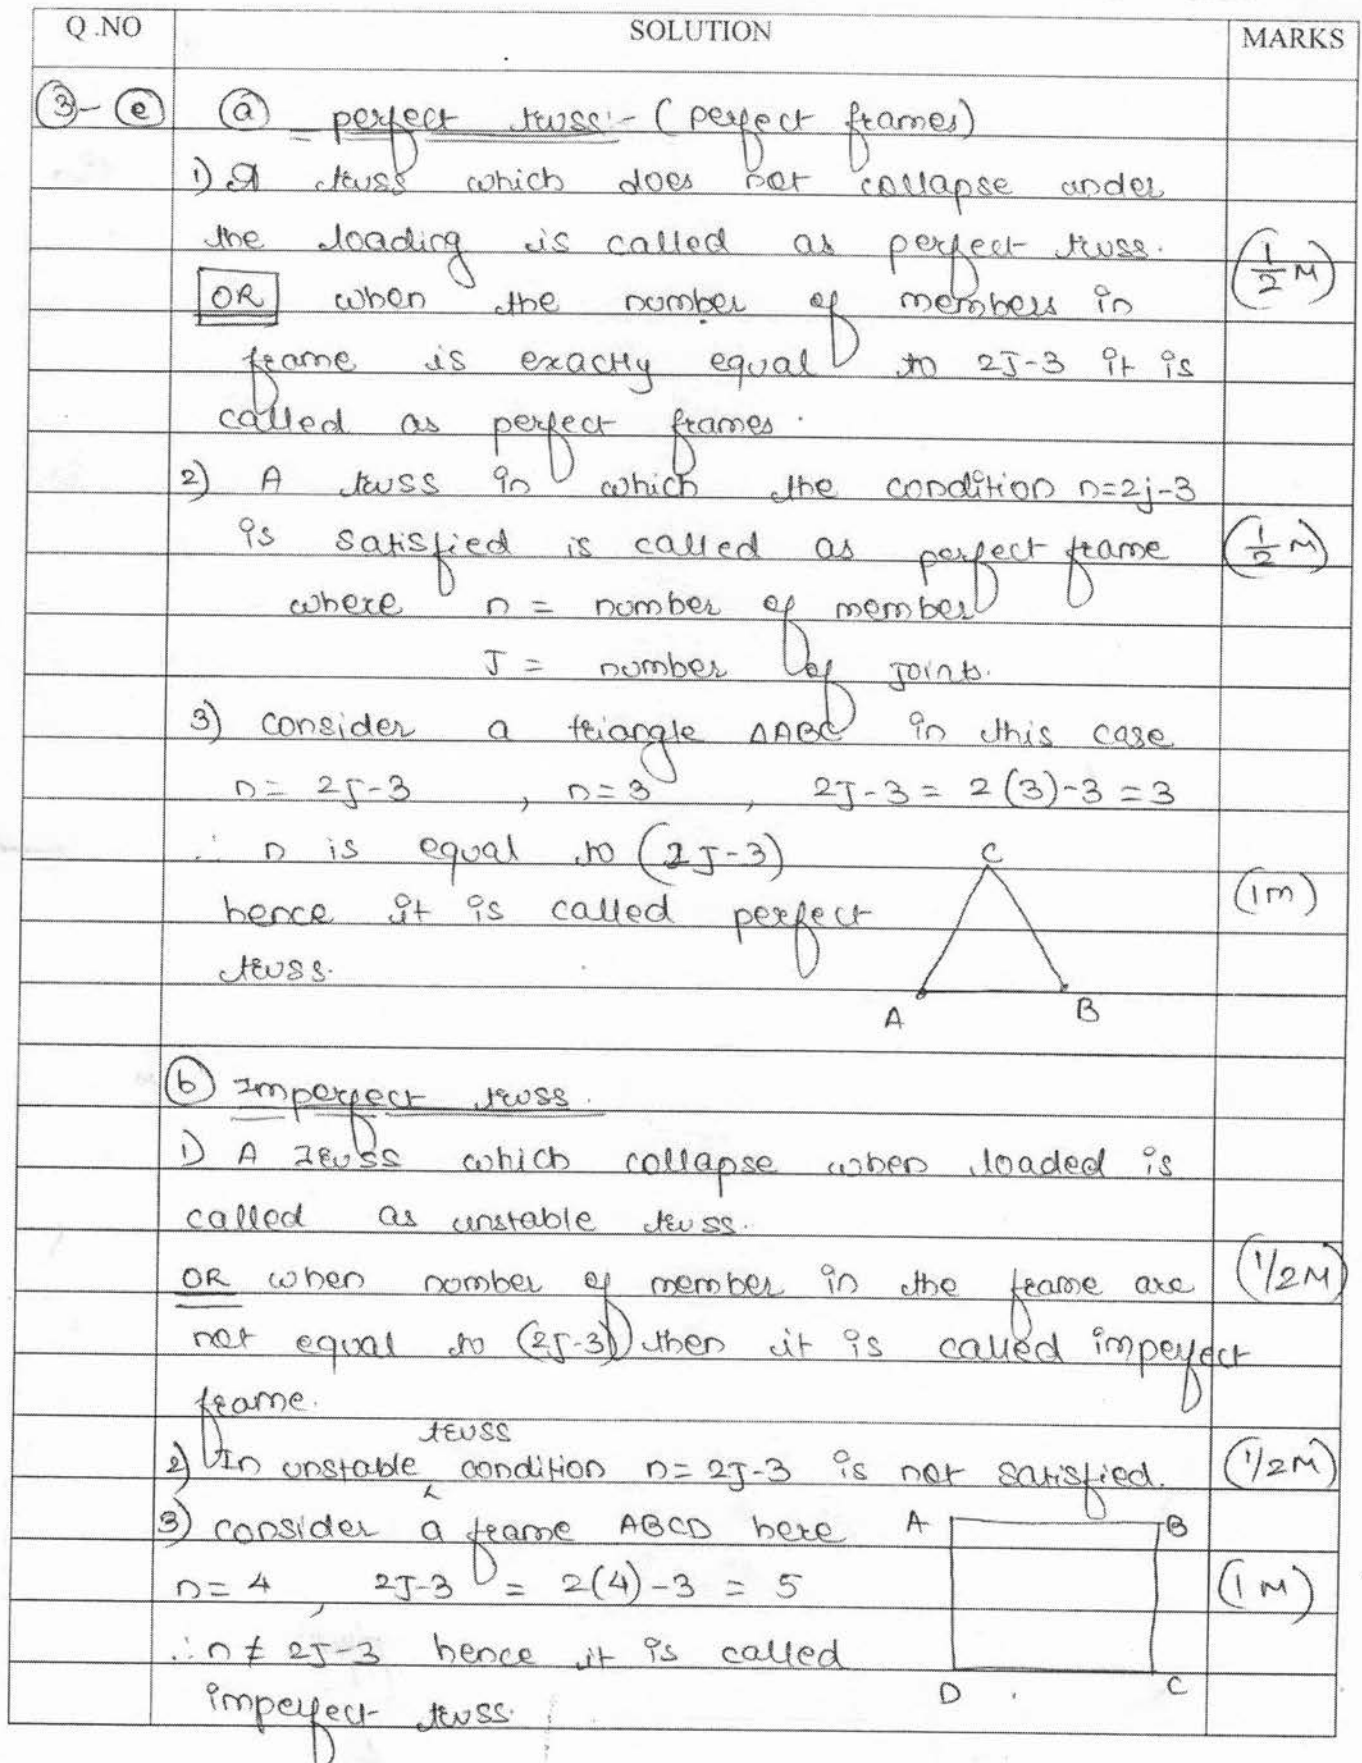 Q.NO SOLUTION MARKS
3- e a perfect truss:- (perfect frames)
1) A truss which does not collapse under
the loading is called as perfect truss.
(1/2 M)
OR when the number of members in
frame is exactly equal to 2J-3 it is
called as perfect frames.
2) A truss in which the condition n=2j-3
is satisfied is called as perfect frame (1/2 M)
where n = number of member
J = number of joints.
3) consider a triangle ΔABC in this case
n= 2J-3 , n=3 , 2J-3 = 2(3)-3 =3
∴ n is equal to (2J-3) C
hence it is called perfect (1M)
truss.
A B
b Imperfect truss.
1) A truss which collapse when loaded is
called as unstable truss.
OR when number of member in the frame are (1/2M)
not equal to (2J-3) then it is called imperfect
frame.
truss
2) In unstable condition n= 2J-3 is not satisfied. (1/2M)
3) consider a frame ABCD here A B
n= 4 , 2J-3 = 2(4)-3 = 5 (1M)
∴ n ≠ 2J-3 hence it is called
D C
imperfect truss.